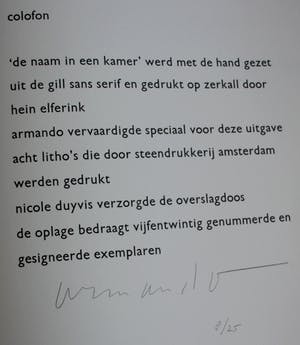 colofon
‘de naam in een kamer’ werd met de hand gezet
uit de gill sans serif en gedrukt op zerkall door
hein elferink
armando vervaardigde speciaal voor deze uitgave
acht litho's die door steendrukkerij amsterdam
werden gedrukt
nicole duyvis verzorgde de overslagdoos
de oplage bedraagt vijfentwintig genummerde en
gesigneerde exemplaren
armando
8/25